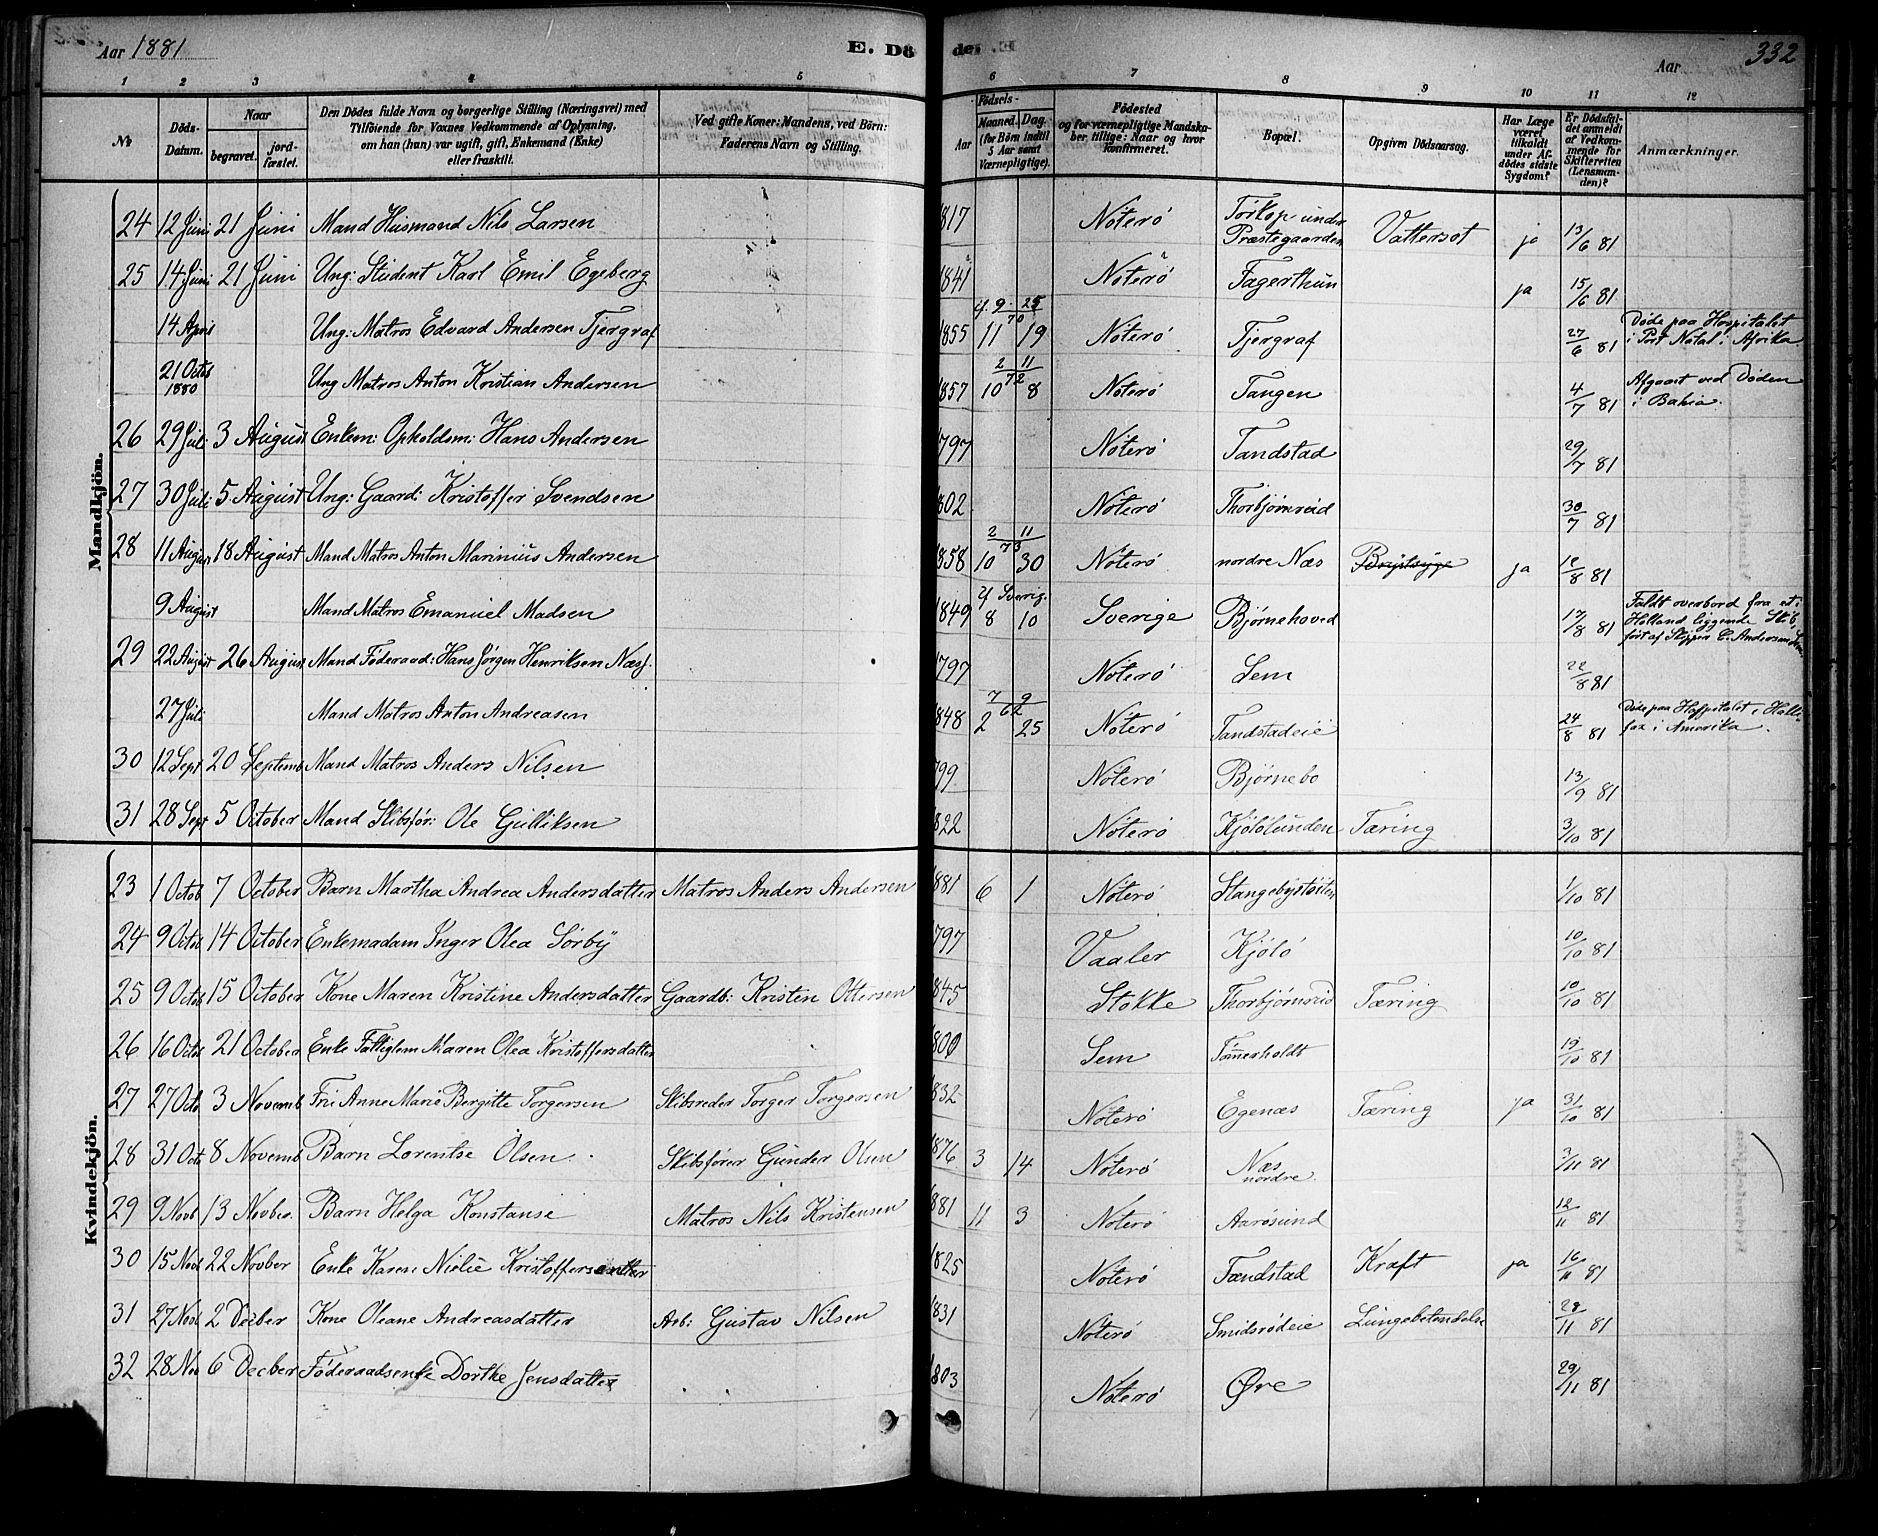 Aar 1881 E. Dö
de. Aar 332
1 2 3 4 5
6 7 8 9 10 11 12
No
Döds-Datum.
Naar
begravet. jord-fæstet.
Den Dödes fulde Navn og borgerlige Stilling (Næringsvei) med
Tilföiende for Voxnes Vedkommende af Oplysning,
om han (hun) var ugift, gift, Enkemand (Enke)
eller fraskilt.
Ved gifte Koner: Mandens, ved Börn:
Faderens Navn og Stilling.
Födsels-
Aar Maaned. Dag.
(for Börn indtil
5 Aar samt
Værnepligtige).
Födested
og for værnepligtige Mandska-
ber tillige: Naar og hvor
konfirmeret.
Bopæl.
Opgiven Dödsaarsag.
Har Læge
været
tilkaldt
under Af-
dödes sidste
Sygdom?
Er Dödsfal-
det anmeldt
af Vedkom-
mende for
Skifteretten
(Lensman-
den)?
Anmærkninger.
Mandkjön.
24 12 Juni 21 Juni Mand Husmand Nils Larsen 1817 Nöterö Törkop under Præstegaarden Vattersot ja 13/6 81
25 14 Juni 21 Juni Ung: Student Karl Emil Egeberg 1841 Nöterö Fagerthun ja 15/6 81
14 April Ung: Matros Edvard Andersen Tjergraf 1855 11 19 Nöterö Tjergraf 27/6 81 Döde paa Hospitalet i Port Natal i Afrika
21 Octb 1880 Ung Matros Anton Kristian Andersen 1857 10 8 Nöterö Tangen 4/7 81 Afgaaet ved Döden i Bahia.
26 29 Juli 3 August Enkem: Opholdsm: Hans Andersen 1797 Nöterö Tandstad 29/7 81
27 30 Juli 5 August Ung: Gaard: Kristoffer Svendsen 1802 Nöterö Thorbjörnsröd 30/7 81
28 11 August 18 August Mand Matros Anton Marinius Andersen 2 11/73 1858 10 30 Nöterö nordre Næs Brystsyge ja 12/8 81
9 August Mand Matros Emanuel Madsen 1849 8 10 Sverige Björnehoved 17/8 81 Faldt overbord fra et i Holland liggende Skib, fört af Skipper C. Andersen
29 22 August 26 August Mand Föderaad: Hans Jörgen Henriksen Næs. 1797 Nöterö Sem 22/8 81
27 Juli Mand Matros Anton Andreasen 7 9/62 1848 2 25 Nöterö Tandstadeie 24/8 81 Döde paa Hospitalet i Hali-fax i Amerika.
30 12 Sept 20 Septemb Mand Matros Anders Nilsen 799 Nöterö Björnebo 13/9 81
31 28 Sept 5 October Mand Skibsför: Ole Gulliksen 1822 Nöterö Kjölölunden Tæring 3/10 81
Kvindekjön.
23 1 Octob 7 October Barn Martha Andrea Andersdatter Matros Anders Andersen 1881 6 1 Nöterö Stangeby 1/10 81
24 9 Octob 14 October Enkemadam Inger Olea Sörby 1797 Vaaler Kjölö 10/10 81
25 9 Octob 15 October Kone Maren Kristine Andersdatter Gaardb: Kristen Ottersen 1845 Stokke Thorbjörnsröd Tæring 10/10 81
26 16 Octob 21 October Enke Fattiglem Maren Olea Kristoffersdatter 1800 Sem Tömmerholdt 19/10 81
27 27 Octo 3 Novemb Fru Anne Marie Bergitte Torgersen Skibsreder Torger Torgersen 1832 Nöterö Egenæs Tæring ja 31/10 81
28 31 Octo 8 Novemb Barn Lorentse Olsen. Skibsförer Gunder Olsen 1876 3 14 Nöterö Næs nordre 3/11 81
29 9 Novb 13 Novber. Barn Helga Konstanse Matros Nils Kristensen 1881 11 3 Nöterö Aarösund 12/11 81
30 15 Nov 22 Novber Enke Karen Nielie Kristoffersdatter 1825 Nöterö Tandstad Kræft ja 16/11 81
31 27 Novb 2 Decber Kone Oleane Andreasdatter Arb: Gustav Nilsen 1831 Nöterö Smidsrödeie Lungebetændelse 28/11 81
32 28 Nov 6 Decber Föderaadsenke Dorthe Jensdatter 1803 Nöterö Øre 29/11 81